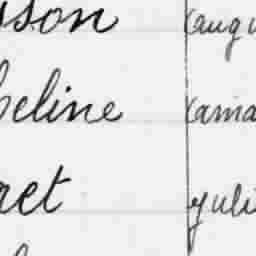 sson (augu
beline (ama
ret yuli